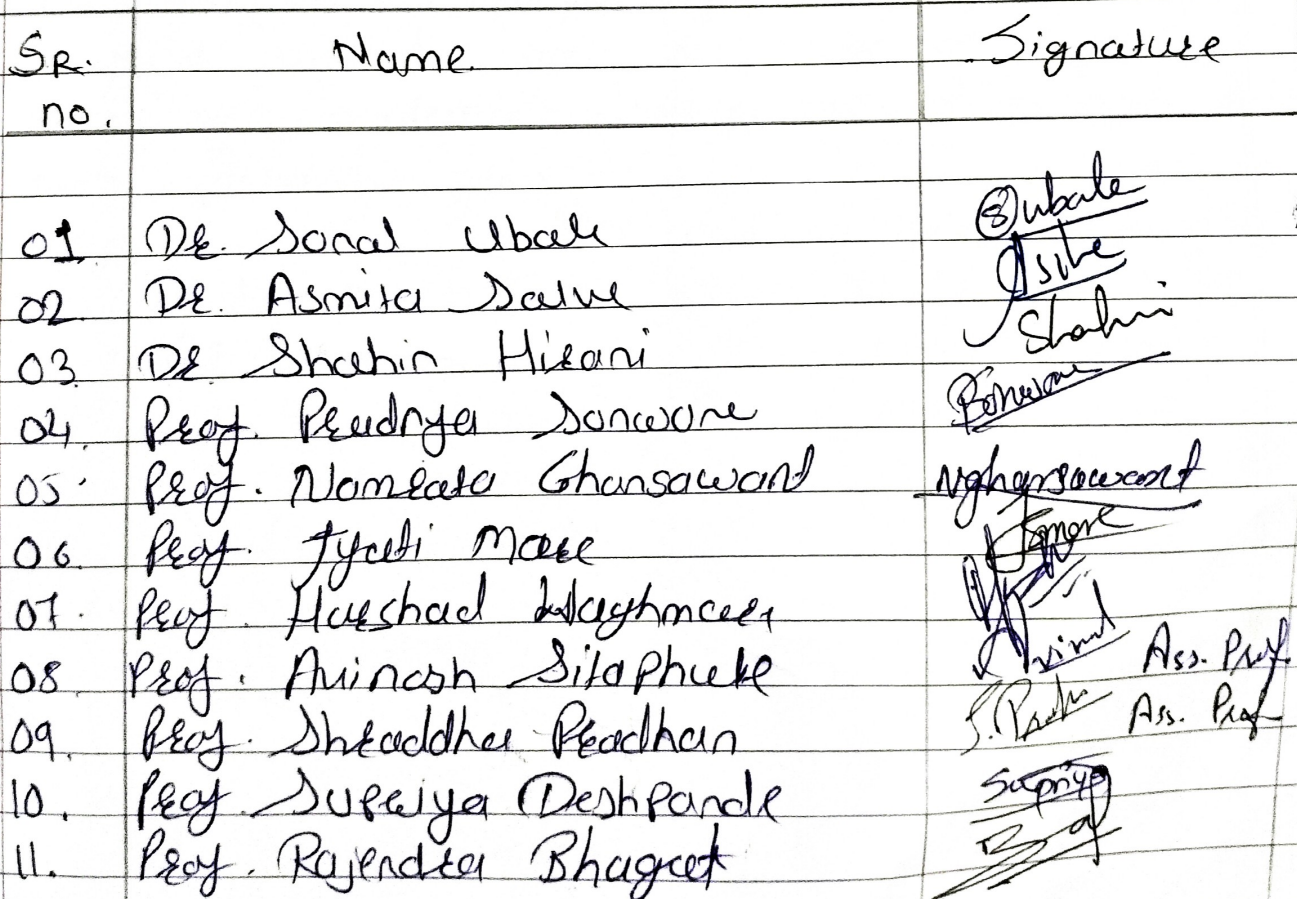 SR. Name Signature
no.
01 DR. Sonal Ubale Subale
02. DR. Asmita Salve
03. DR Shahin Hirani Shahin
04. Prof. Sonwane
05. Prof. Namrata Ghansawant Nghansawant
06. Prof. Jyoti More Jmore
07. Prof. Harshad Waghmare
08. Prof. Avinash Sitaphule Ass. Prof.
09. Prof. Shraddha Pradhan Ass. Prof
10. Prof. Supriya Deshpande Supriya
11. Prof. Rajendra Bhagat